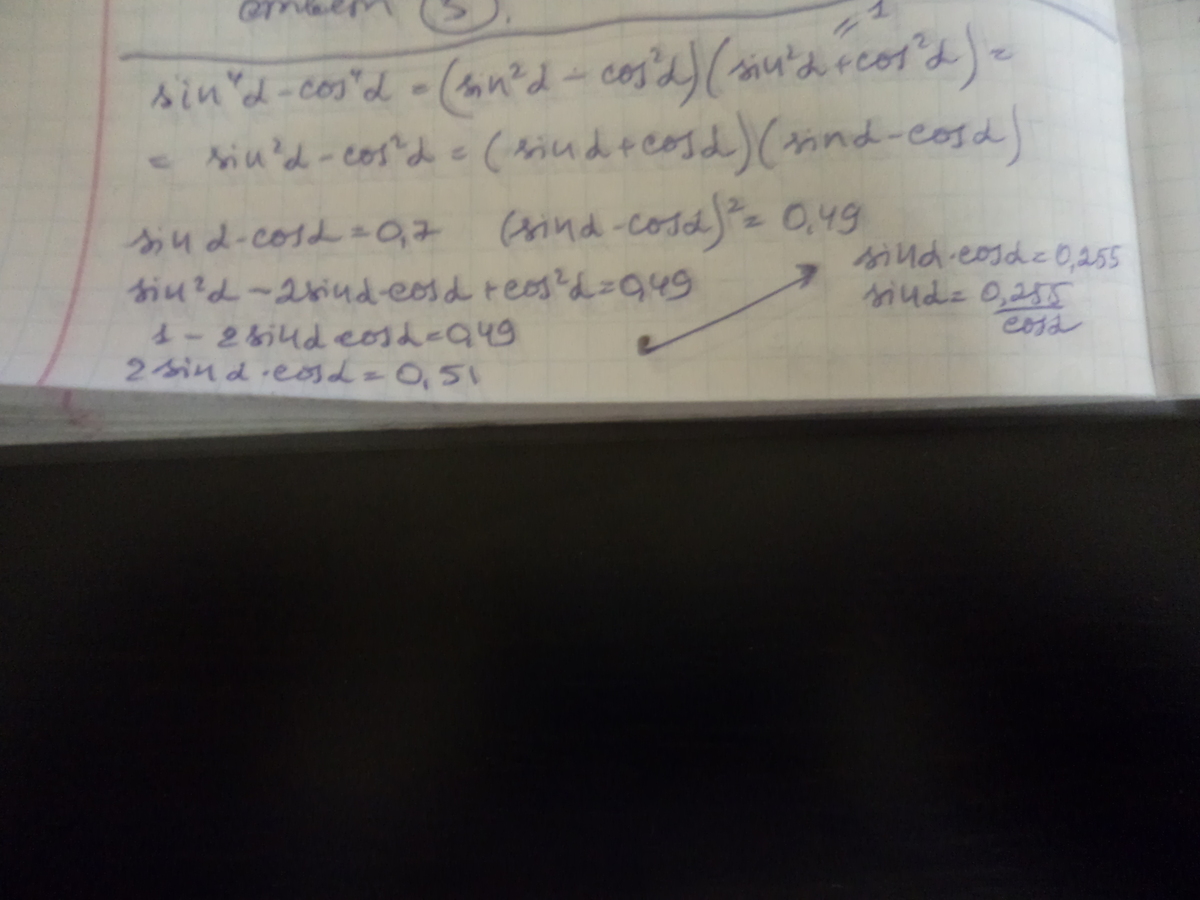 ответ (3).
= 1
sin⁴α - cos⁴α = (sin²α - cos²α)(sin²α + cos²α) =
= sin²α - cos²α = (sinα + cosα)(sinα - cosα)
sinα - cosα = 0,7 (sinα - cosα)² = 0,49
sin²α - 2sinα·cosα + cos²α = 0,49
1 - 2sinα cosα = 0,49
2sinα·cosα = 0,51
sinα·cosα = 0,255
sinα = 0,255
cosα